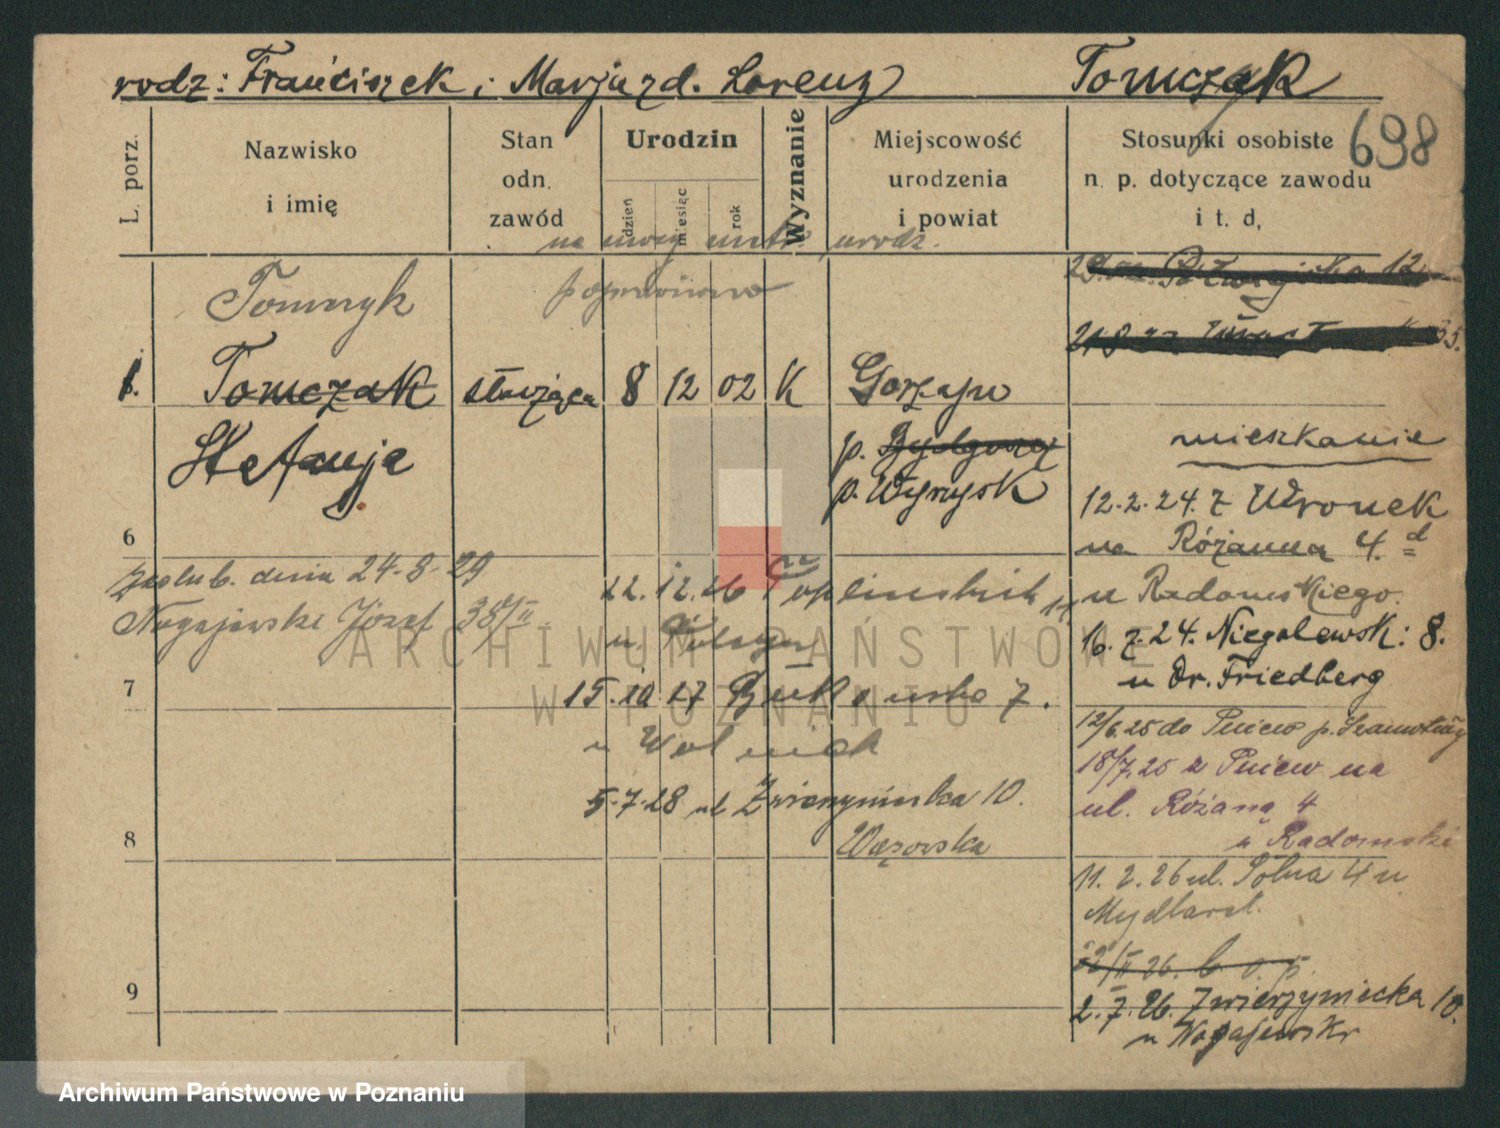 rodz: Franciszek i Marja zd. Lorenz Tomczak
698
L. porz.
Nazwisko
i imię
Stan
odn.
zawód
Urodzin
dzień
miesiąc
rok
Wyznanie
Miejscowość
urodzenia
i powiat
Stosunki osobiste
n. p. dotyczące zawodu
i t. d,
urodz.
Tomczyk
poprawiono
1. Tomczak służąca 8 12 02 K
Stefanja
Gorzajn
p. Bydgoszcz
p. Wyrzysk
mieszkanie
12.2.24. z Wronek
na Różanna 4.
u Radomskiego.
16.7.24. Niegolewsk: 8.
u Dr. Friedberg
12/6.25 do Pniew p. Szamotuły
18/7.25 z Pniew na
ul. Różana 4
u Radomski
11.2.26 ul. Polna 4 u
22/II 26.
2.7.26. Zwierzyniecka 10.
u Nogajewski
6
zaślub. dnia 24-8-29
Nogajewski Józef 38/II
22.12.26
u
7
15.10.27 7.
u
5-7-28 ul Zwierzyniecka 10.
Wązowska
8
9
ARCHIWUM PAŃSTWOWE
W POZNANIU
Archiwum Państwowe w Poznaniu